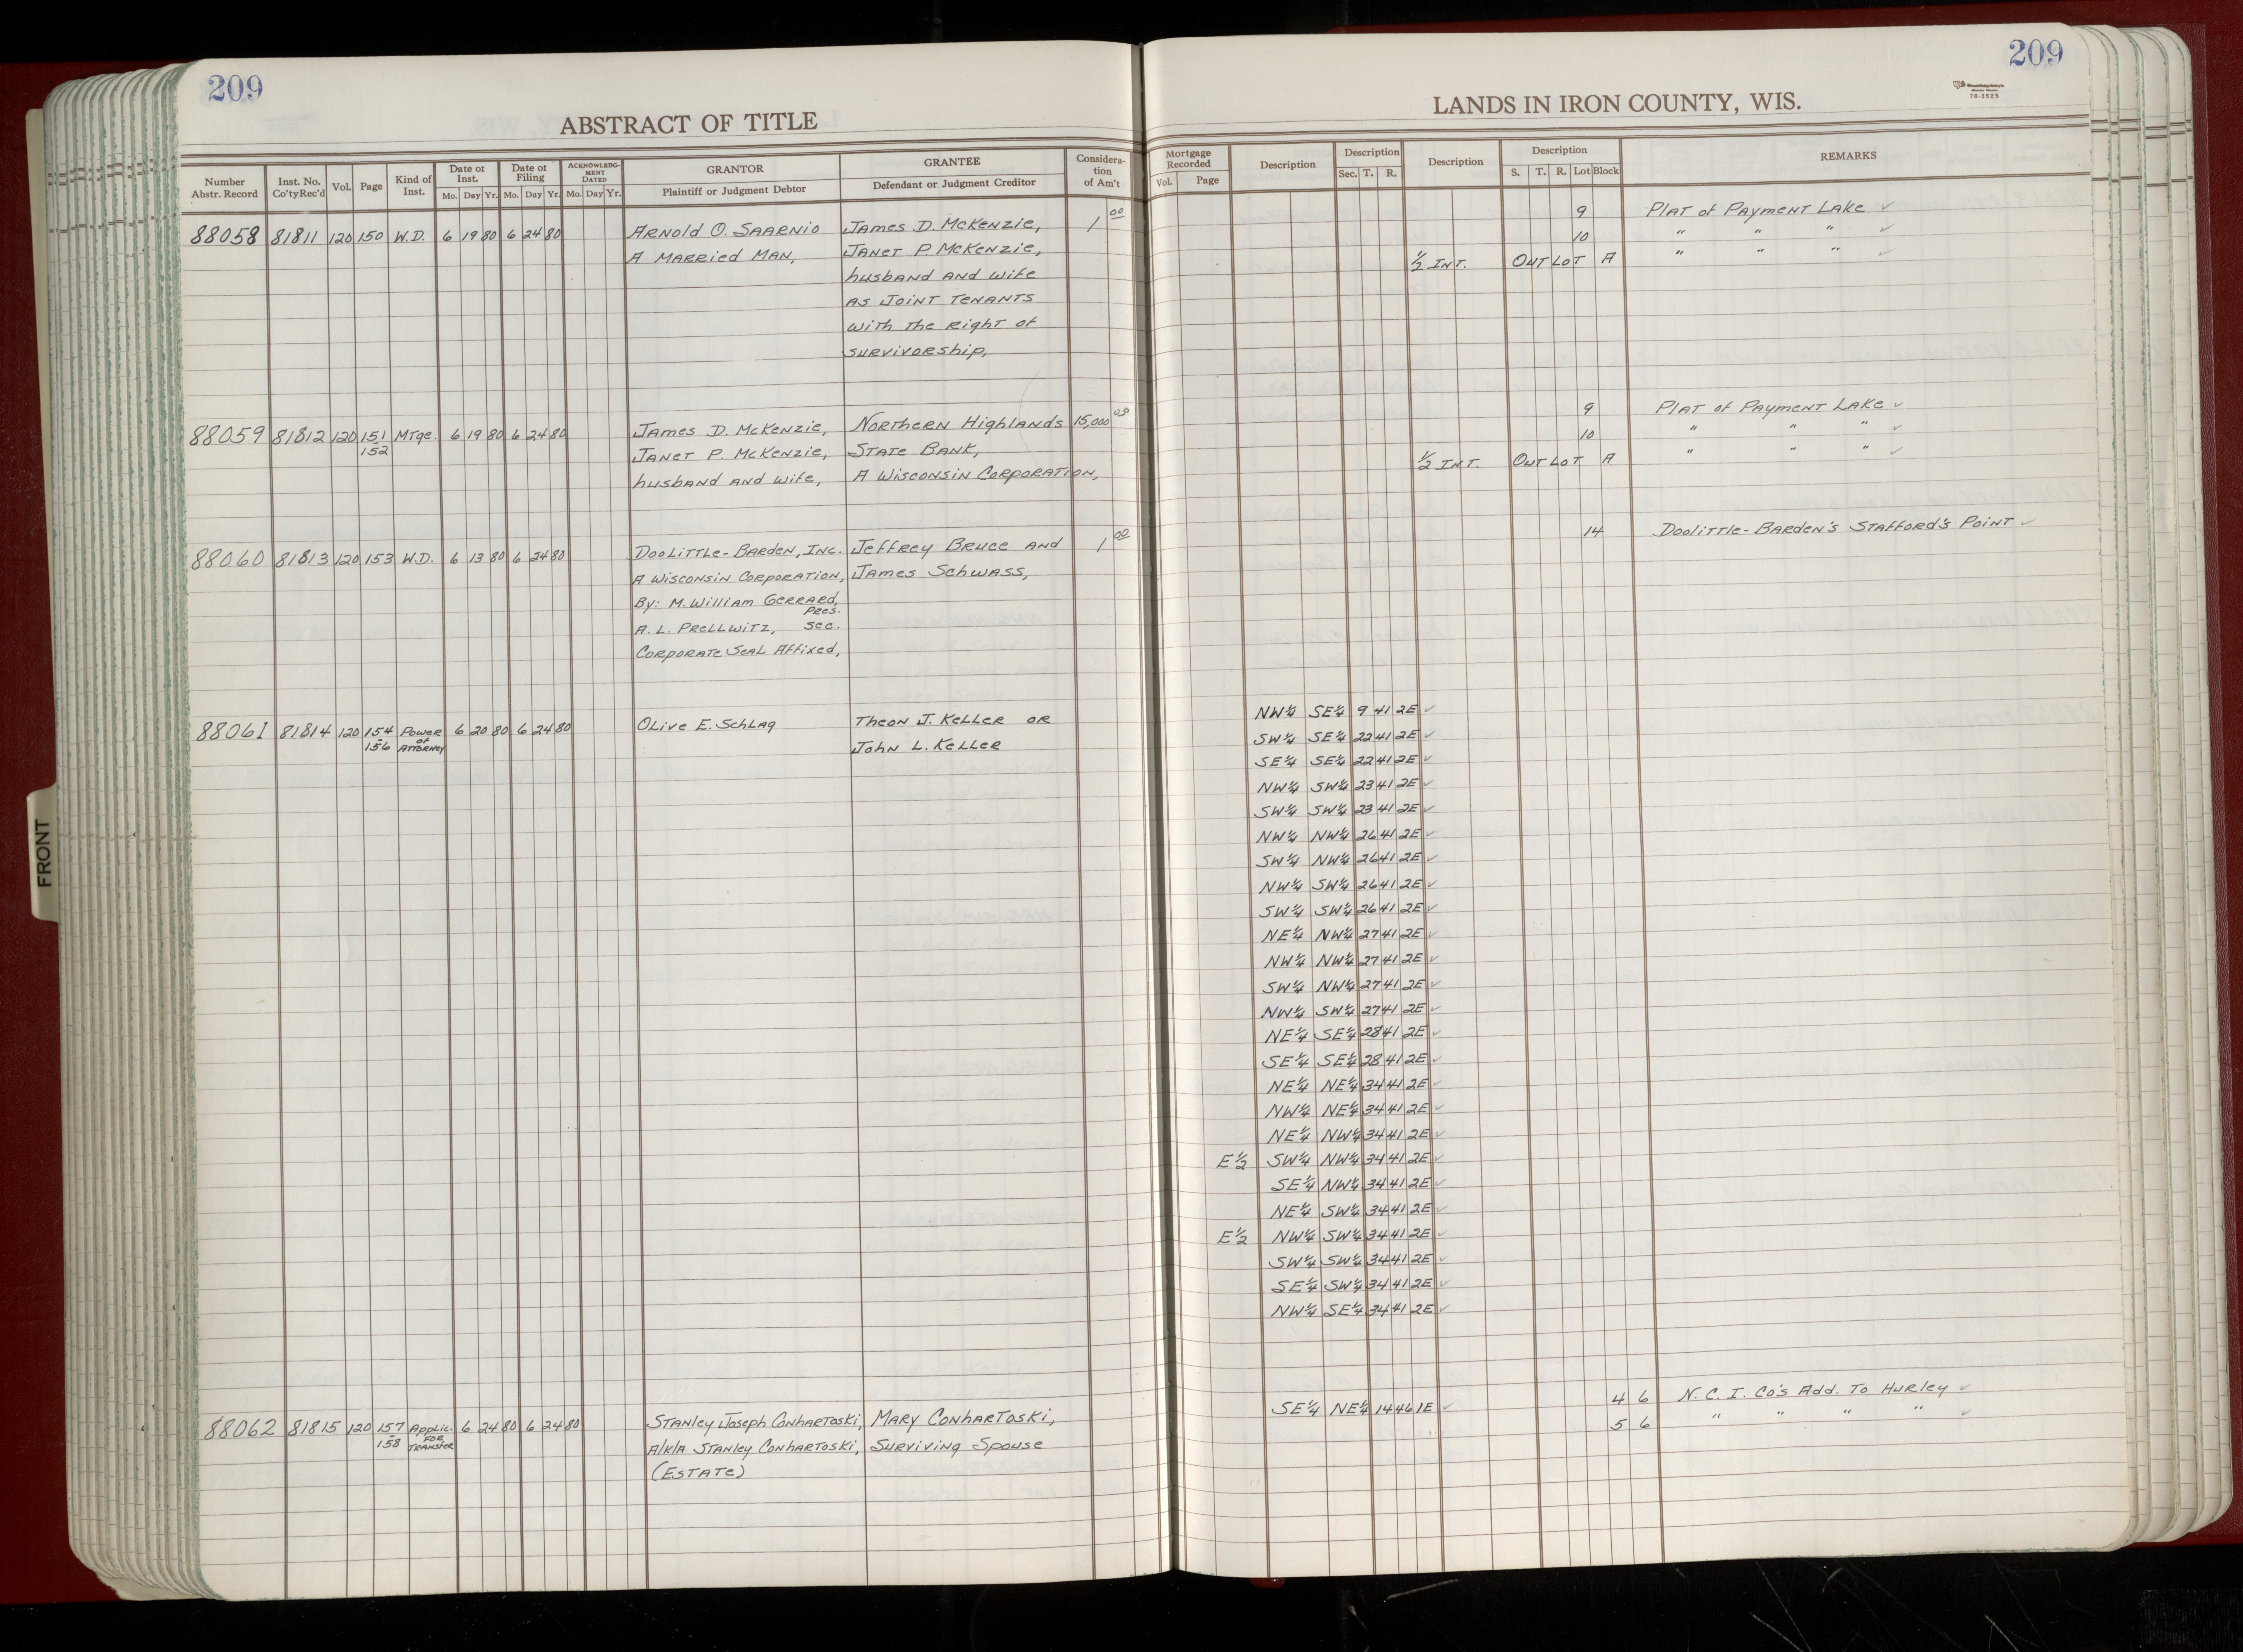 209
ABSTRACT OF TITLE
Number Abstr. Record
Inst. No. Co'ty Rec'd
Vol.
Page
Kind of Inst.
Date of Inst.
Mo. Day Yr.
Date of Filing
Mo. Day Yr.
ACKNOWLEDGMENT DATED
Mo. Day Yr.
GRANTOR
Plaintiff or Judgment Debtor
GRANTEE
Defendant or Judgment Creditor
Consideration of Am't
88058 81811 120 150 W.D. 6 19 80 6 24 80 Arnold O. Saarnio James D. McKenzie, 1 00
A Married Man, Janet P. McKenzie,
husband and wife
as joint tenants
with the right of
survivorship,
88059 81812 120 151-152 Mtge. 6 19 80 6 24 80 James D. McKenzie, Northern Highlands 15,000 00
Janet P. McKenzie, State Bank,
husband and wife, A Wisconsin Corporation,
88060 81813 120 153 W.D. 6 13 80 6 24 80 Doolittle-Barden, Inc. Jeffrey Bruce and 1 00
A Wisconsin Corporation, James Schwass,
By: M. William Gerrard, Pres.
A. L. Prellwitz, Sec.
Corporate Seal Affixed,
88061 81814 120 154-156 Power of Attorney 6 20 80 6 24 80 Olive E. Schlag Theon J. Keller or
John L. Keller
88062 81815 120 157-158 Applic. for Transfer 6 24 80 6 24 80 Stanley Joseph Conhartoski, Mary Conhartoski,
A/k/a Stanley Conhartoski, Surviving Spouse
(Estate)
FRONT
209
LANDS IN IRON COUNTY, WIS.
78-3525
Mortgage Recorded
Vol. Page
Description
Description
Sec. T. R.
Description
Description
S. T. R. Lot Block
REMARKS
9 Plat of Payment Lake ✓
10 " " " ✓
1/2 Int. Out Lot A " " " ✓
9 Plat of Payment Lake ✓
10 " " " ✓
1/2 Int. Out Lot A " " " ✓
14 Doolittle-Barden's Stafford's Point ✓
NW¼ SE¼ 9 41 2E ✓
SW¼ SE¼ 22 41 2E ✓
SE¼ SE¼ 22 41 2E ✓
NW¼ SW¼ 23 41 2E ✓
SW¼ SW¼ 23 41 2E ✓
NW¼ NW¼ 26 41 2E ✓
SW¼ NW¼ 26 41 2E ✓
NW¼ SW¼ 26 41 2E ✓
SW¼ SW¼ 26 41 2E ✓
NE¼ NW¼ 27 41 2E ✓
NW¼ NW¼ 27 41 2E ✓
SW¼ NW¼ 27 41 2E ✓
NW¼ SW¼ 27 41 2E ✓
NE¼ SE¼ 28 41 2E ✓
SE¼ SE¼ 28 41 2E ✓
NE¼ NE¼ 34 41 2E ✓
NW¼ NE¼ 34 41 2E ✓
NE¼ NW¼ 34 41 2E ✓
E½ SW¼ NW¼ 34 41 2E ✓
SE¼ NW¼ 34 41 2E ✓
NE¼ SW¼ 34 41 2E ✓
E½ NW¼ SW¼ 34 41 2E ✓
SW¼ SW¼ 34 41 2E ✓
SE¼ SW¼ 34 41 2E ✓
NW¼ SE¼ 34 41 2E ✓
SE¼ NE¼ 14 46 1E ✓ 4 6 N. C. I. Co's Add. To Hurley ✓
5 6 " " " " ✓